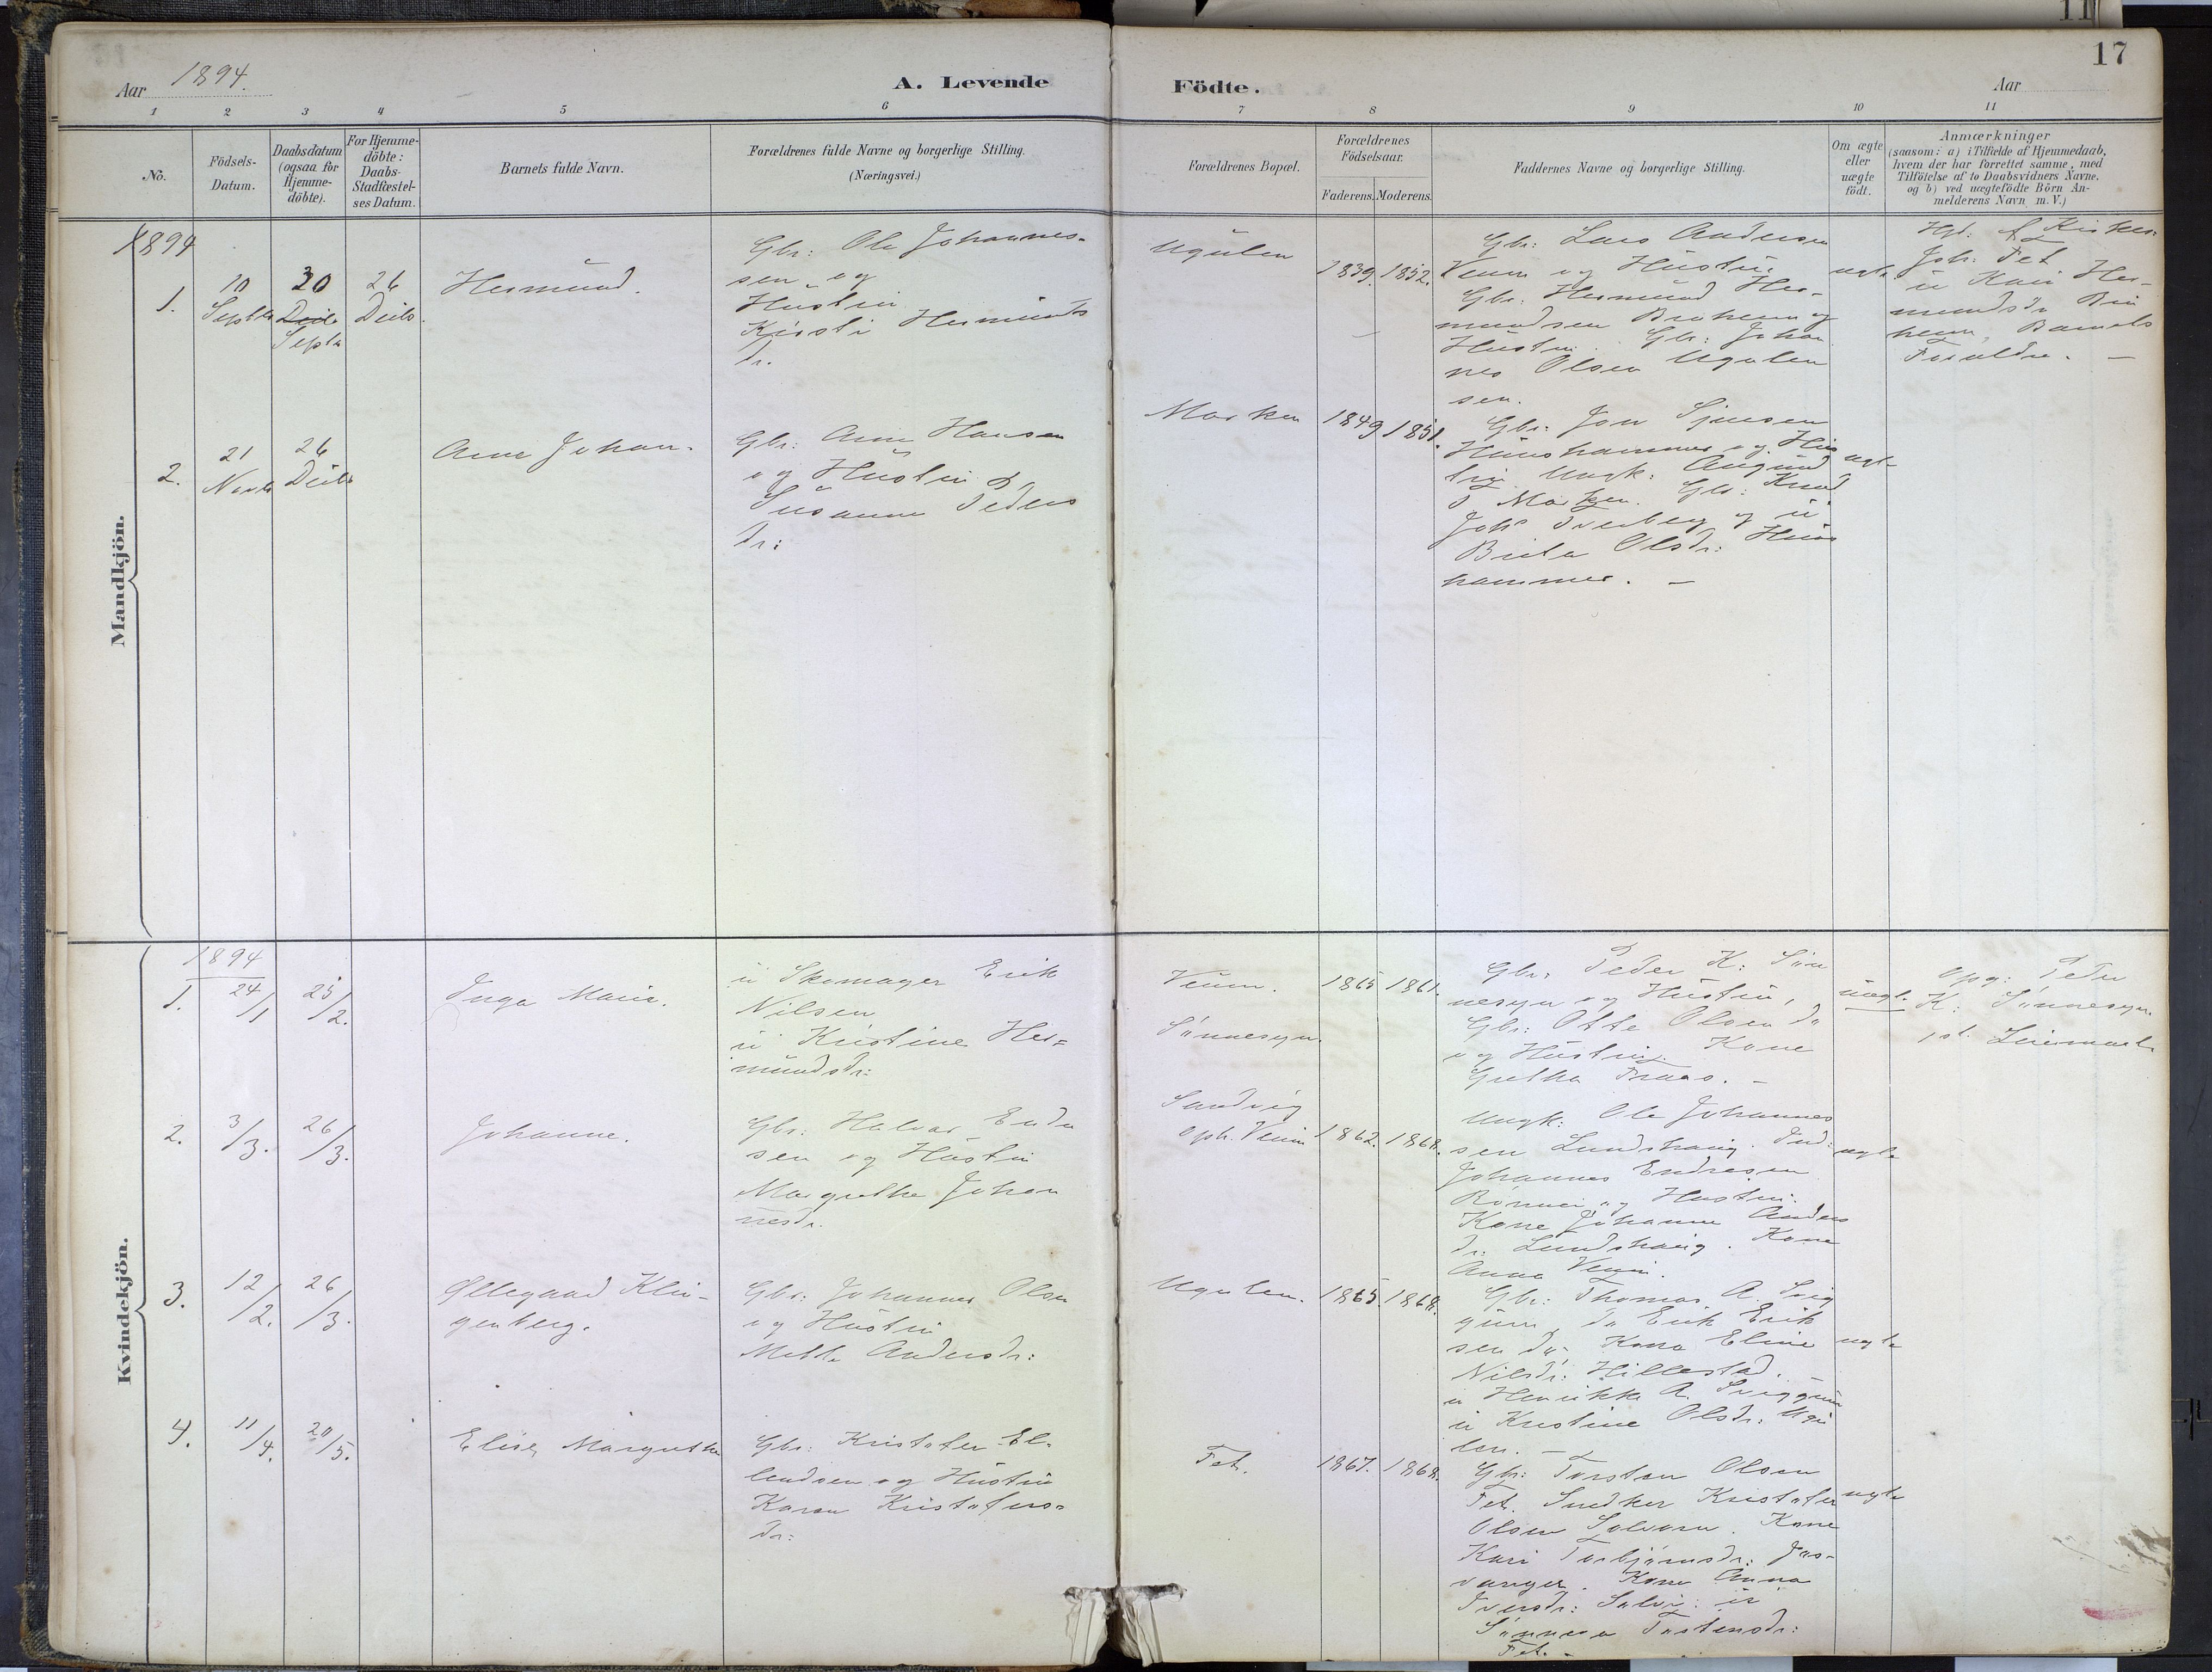 17
Aar 1894.
A. Levende Födte.
Aar
1 2 3 4 5 6 7 8 9 10 11
No.
Födsels-
Datum.
Daabsdatum
(ogsaa for
Hjemme-
döbte).
For Hjemme-
döbte:
Daabs-
Stadfæstel-
ses Datum.
Barnets fulde Navn.
Forældrenes fulde Navne og borgerlige Stilling.
(Næringsvei.)
Forældrenes Bopæl.
Forældrenes
Födselsaar.
Faderens. Moderens.
Faddernes Navne og borgerlige Stilling.
Om ægte
eller
uægte
födt.
Anmærkninger
(saasom: a) i Tilfælde af Hjemmedaab,
hvem der har forrettet samme, med
Tilföielse af to Daabsvidners Navne,
og b) ved uægtefödte Börn An-
melderens Navn m. V.)
Mandkjön.
1894
1.
10
Septbr
30
Decbr
Septbr
26
Decbr.
Hermund.
Gbr: Ole Johannes-
sen og
Hustru
Kirsti Hermunds
dr.
Ugulen
1839. 1852.
Gbr: Lars Andersen
Venum og Hustru.
Gbr: Hermund Her-
mundsen Broheim og
Hustru. Gbr: Johan
nes Olsen Ugulen
sen.
ægte
Hjd. af Kirkes:
Joh: Fet
u Kari Her-
mundsdr
heim, Barnets
Forældre. —
2.
21
Novbr
26
Decbr
Arne Johan.
Gbr: Arne Hansen
og Hustru
Susanne Peders
dr:
Marken
1849 1851.
Gbr: Jon Sjursen
Hunshammer og Hus
tru. Ungk: Augund
J Marken. Gbr: Knud
Johs Tverberg og u
Brita Olsdr: Huns
hammer. —
Kvindekjön.
1894
1.
24/1
25/2.
Inga Marie.
u Skomager Erik
Nilsen
u Kristine Her=
mundsdr:
Venum.
Sönnesyn.
1865 1861.
Gbr: Peder K: Sön
nesyn og Hustru,
Gbr: Otte Olsen do
og Hustru. Kone
Grethe Fraas. —
uægte
Opg: Peder
K: Sönnesyn.
1st. Leiermaal.
2.
3/3.
26/3.
Johanne.
Gbr: Halvar Endre
sen og Hustru
Margrethe Johan
nesdr.
Sandvig
oph. Venum
1862. 1868.
Ungk: Ole Johannes
sen Lundshaug. Ind:
Johannes Endresen
Rönnei og Hustru.
Kone Johanne Anders
dr: Lundshaug. Kone
Anna Venum.
ægte
3.
12/2.
26/3.
Øllegaard Klin-
genberg.
Gbr: Johannes Olsen
og Hustru
Mette Andersdr:
Ugulen.
1865. 1868.
Gbr: Thomas A. Svig
gum, do Erik Erik
sen do, Kone Eline
Nilsdr: Hillestad. —
u Henrikke A. Sviggum
u Kristine Olsdr: Ugu
len. —
ægte
4.
11/4.
20/5.
Elise Margrethe
Gbr: Kristofer El-
lendsen og Hustru
Karen Kristofers-
dr:
Fet.
1867. 1868.
Gbr: Torsten Olsen
Fet. Snedker Kristofer
Olsen Solvorn. Kone
Kari Torbjörnsdr: Jos-
vanger. Kone Anna
Iversdr: Solvi: u
Sönneva Torstensdr:
Fet. —
ægte